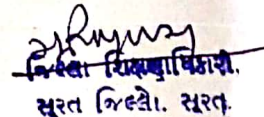 જિલ્લા શિક્ષણાધિકારી.
સુરત જિલ્લો. સુરત.